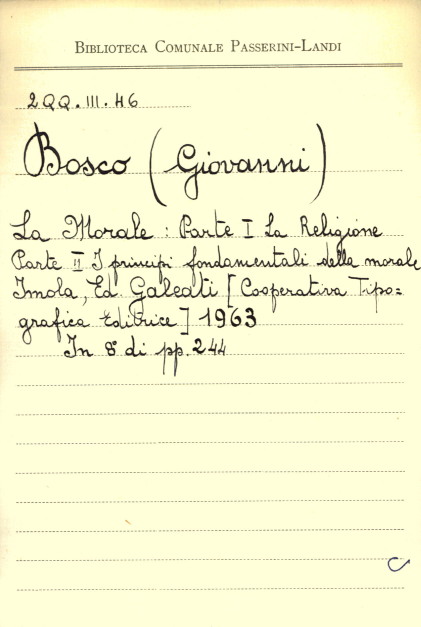 BIBLIOTECA COMUNALE PASSERINI-LANDI
2QQ.III.46
Bosco (Giovanni)
La Morale : Parte I La Religione
Parte II I principi fondamentali della morale
Imola, Ed. Galeati [Cooperativa Tipo=
grafica Editrice] 1963
In 8° di pp. 244